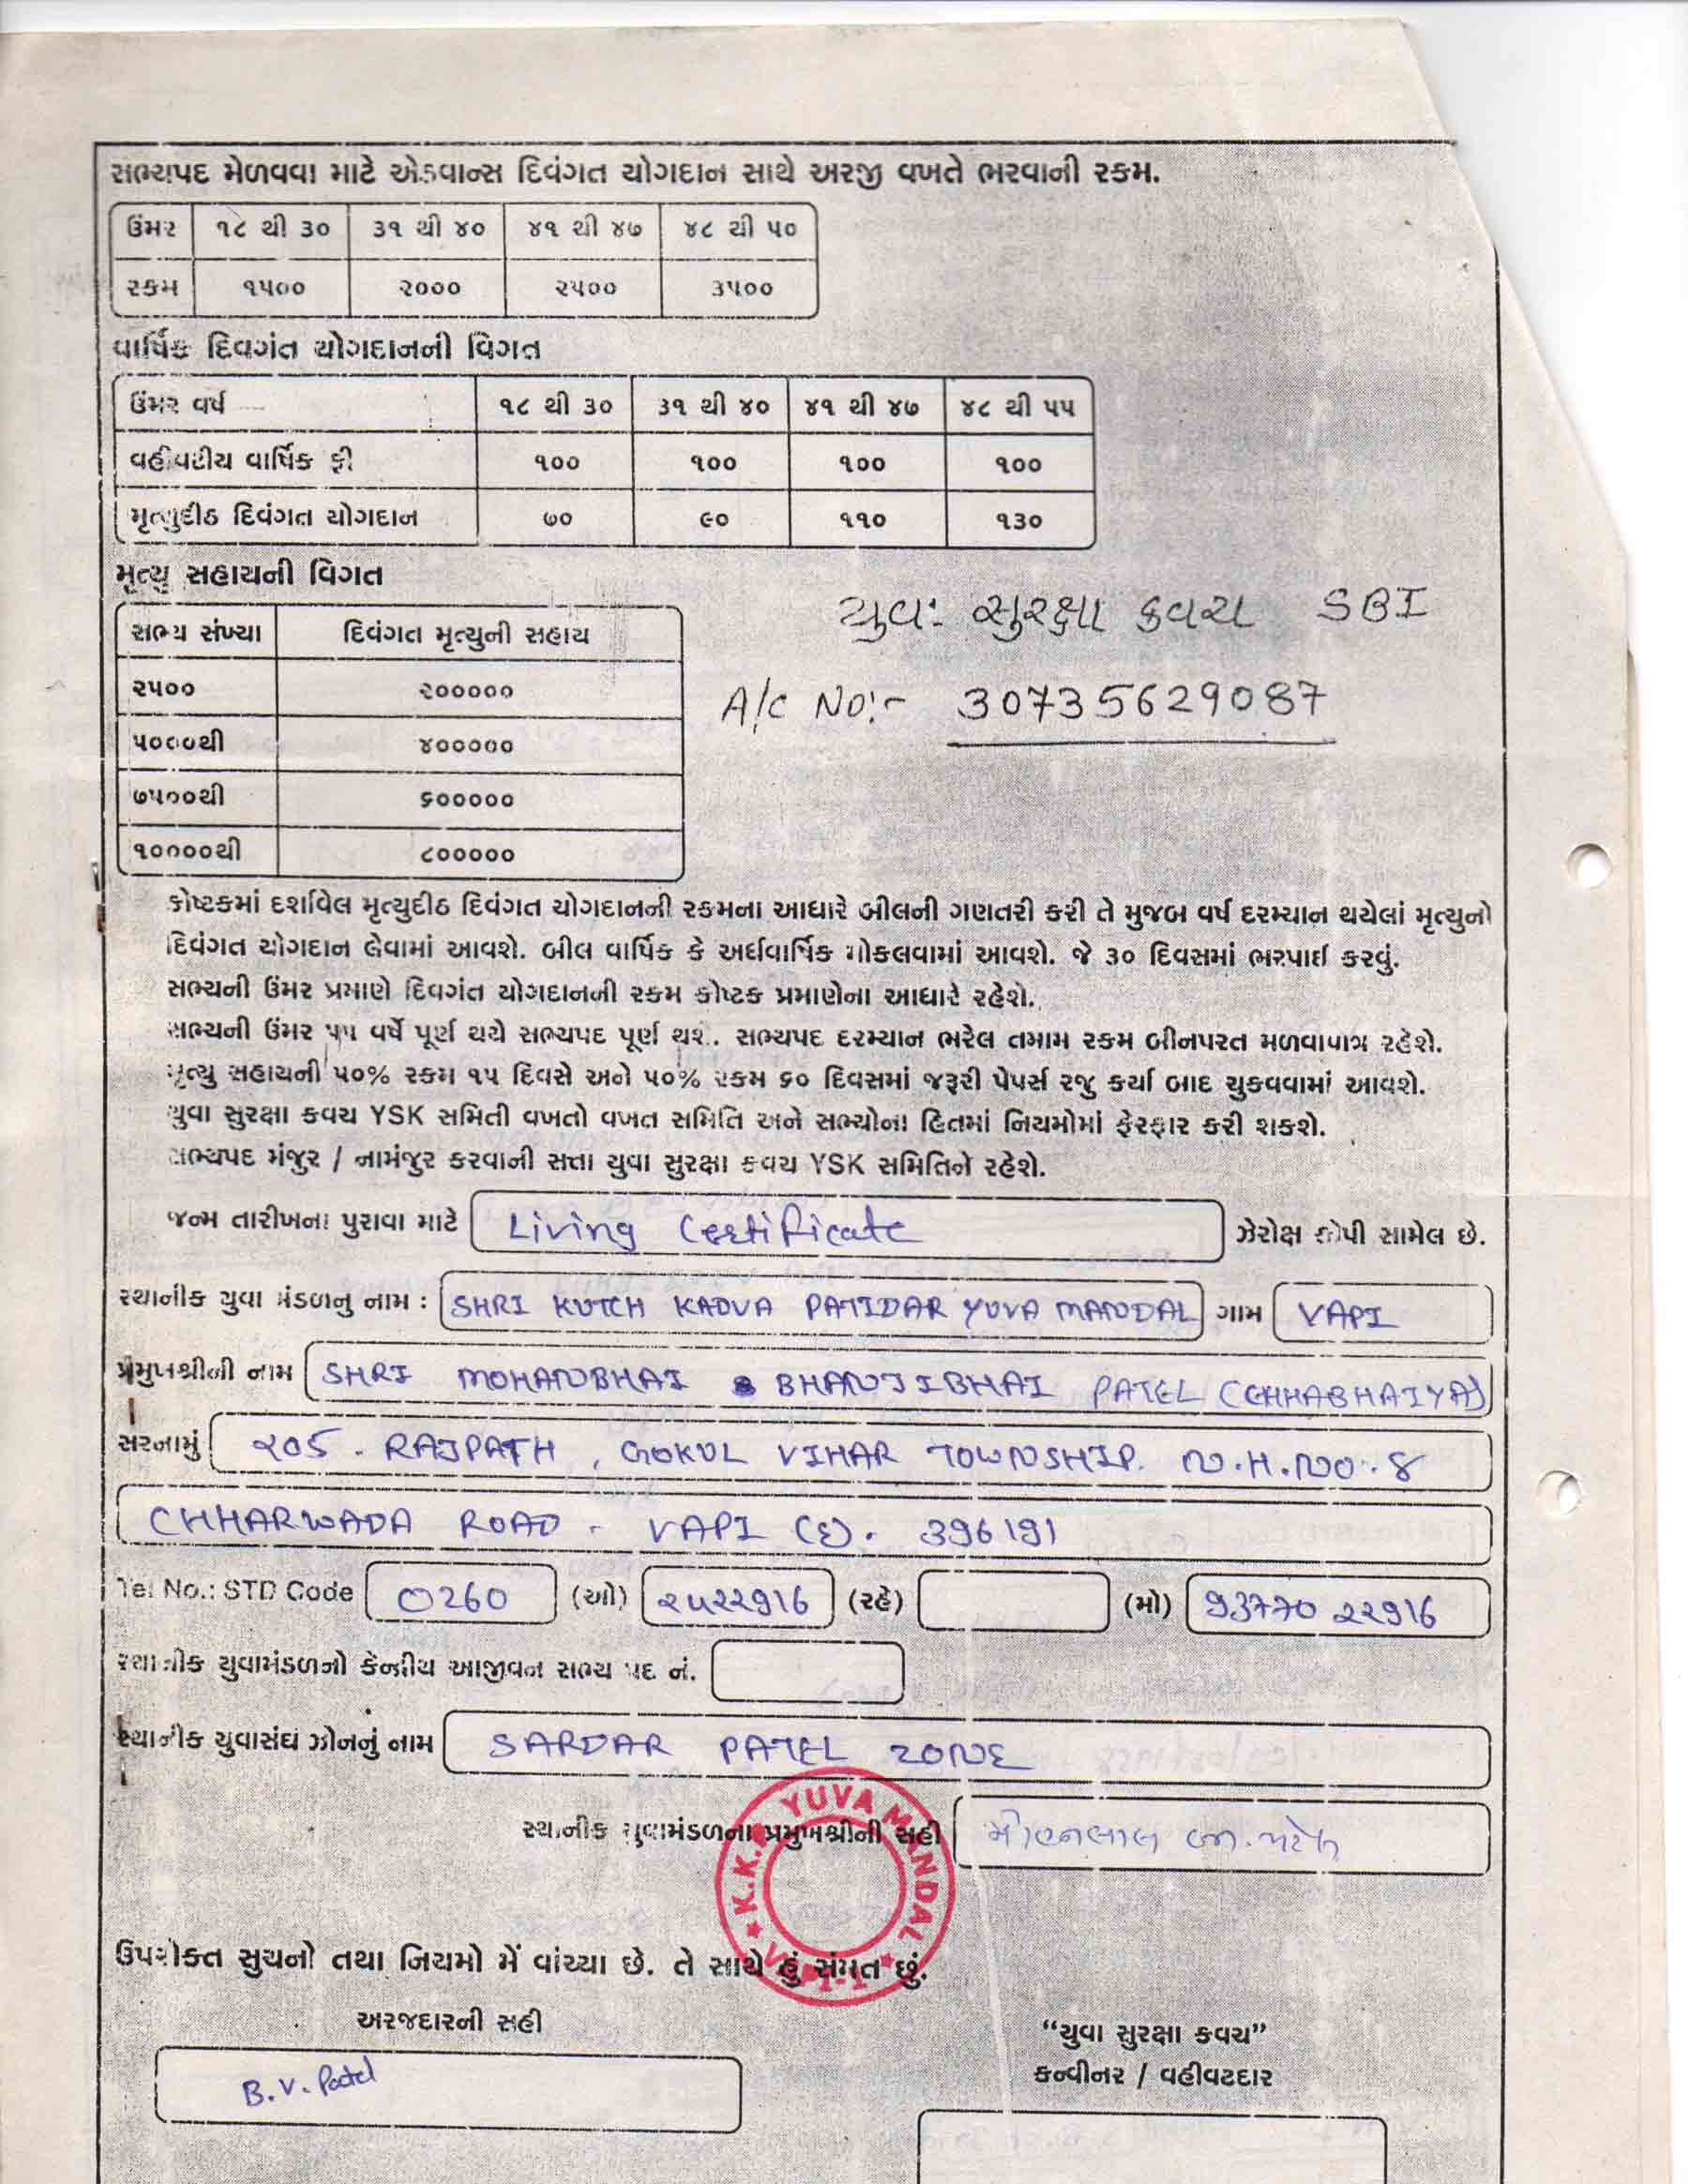 સભ્યપદ મેળવવા માટે એડવાન્સ દિવંગત યોગદાન સાથે અરજી વખતે ભરવાની રકમ.
ઉંમર ૧૮ થી ૩૦ ૩૧ થી ૪૦ ૪૧ થી ૪૭ ૪૮ થી ૫૦
રકમ ૧૫૦૦ ૨૦૦૦ ૨૫૦૦ ૩૫૦૦
વાર્ષિક દિવગંત યોગદાનની વિગત
ઉંમર વર્ષ ૧૮ થી ૩૦ ૩૧ થી ૪૦ ૪૧ થી ૪૭ ૪૮ થી ૫૫
વહીવટીય વાર્ષિક ફી ૧૦૦ ૧૦૦ ૧૦૦ ૧૦૦
મૃત્યુદીઠ દિવંગત યોગદાન ૭૦ ૯૦ ૧૧૦ ૧૩૦
મૃત્યુ સહાયની વિગત
સભ્ય સંખ્યા દિવંગત મૃત્યુની સહાય
યુવા સુરક્ષા કવચ SBI
૨૫૦૦ ૨૦૦૦૦૦
A/c No:- 30735629087
૫૦૦૦થી ૪૦૦૦૦૦
૭૫૦૦થી ૬૦૦૦૦૦
૧૦૦૦૦થી ૮૦૦૦૦૦
કોષ્ટકમાં દર્શાવેલ મૃત્યુદીઠ દિવંગત યોગદાનની રકમના આધારે બીલની ગણતરી કરી તે મુજબ વર્ષ દરમ્યાન થયેલાં મૃત્યુનો
દિવંગત યોગદાન લેવામાં આવશે. બીલ વાર્ષિક કે અર્ધવાર્ષિક મોકલવામાં આવશે. જે ૩૦ દિવસમાં ભરપાઈ કરવું.
સભ્યની ઉંમર પ્રમાણે દિવગંત યોગદાનની રકમ કોષ્ટક પ્રમાણેના આધારે રહેશે.
સભ્યની ઉંમર ૫૫ વર્ષે પૂર્ણ થયે સભ્યપદ પૂર્ણ થશે. સભ્યપદ દરમ્યાન ભરેલ તમામ રકમ બીનપરત મળવાપાત્ર રહેશે.
મૃત્યુ સહાયની ૫૦% રકમ ૧૫ દિવસે અને ૫૦% રકમ ૬૦ દિવસમાં જરૂરી પેપર્સ રજુ કર્યા બાદ ચુકવવામાં આવશે.
યુવા સુરક્ષા કવચ YSK સમિતી વખતો વખત સમિતિ અને સભ્યોના હિતમાં નિયમોમાં ફેરફાર કરી શકશે.
સભ્યપદ મંજુર / નામંજુર કરવાની સત્તા યુવા સુરક્ષા કવચ YSK સમિતિને રહેશે.
જન્મ તારીખના પુરાવા માટે Living Certificate ઝેરોક્ષ કોપી સામેલ છે.
સ્થાનીક યુવા મંડળનુ નામ : SHRI KUTCH KADVA PATIDAR YUVA MANDAL ગામ VAPI
પ્રમુખશ્રીની નામ SHRI MOHANBHAI BHANJIBHAI PATEL (CHHABHAIYA)
સરનામું ૨૦5. RAJPATH, GOKUL VIHAR TOWNSHIP. N.H.NO.8
CHHARWADA ROAD - VAPI (E). 396191
Tel No.: STD Code 0260 (ઓ) ૨૫૨૨916 (રહે) (મો) 93770 ૨૨916
સ્થાનીક યુવામંડળનો કેન્દ્રીય આજીવન સભ્ય પદ નં.
સ્થાનીક યુવાસંઘ ઝોનનું નામ SARDAR PATEL ZONE
સ્થાનીક યુવામંડળના પ્રમુખશ્રીની સહી મોહનલાલ ભા. પટેલ
K.K.P. YUVA MANDAL VAPI
ઉપરોક્ત સુચનો તથા નિયમો મેં વાંચ્યા છે. તે સાથે હું સંમત છું.
અરજદારની સહી
"યુવા સુરક્ષા કવચ"
કન્વીનર / વહીવટદાર
B.V. Patel